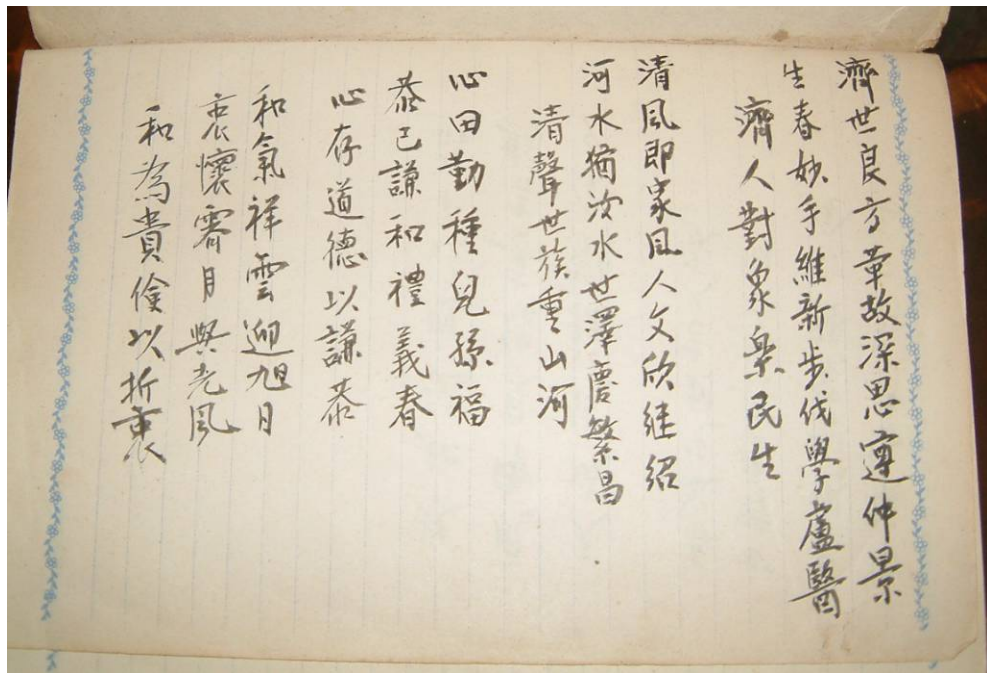 濟世良方革故深思遵仲景
生春妙手維新步伐學盧醫
濟人對象樂民生
清風即家風人文欣継紹
河水猶汝水世澤慶繁昌
清聲世族重山河
心田勤種兒孫福
恭己謙和禮義春
心存道德以謙恭
和氣祥雲迎旭日
衷懷霽月與光風
和為貴儉以折衷